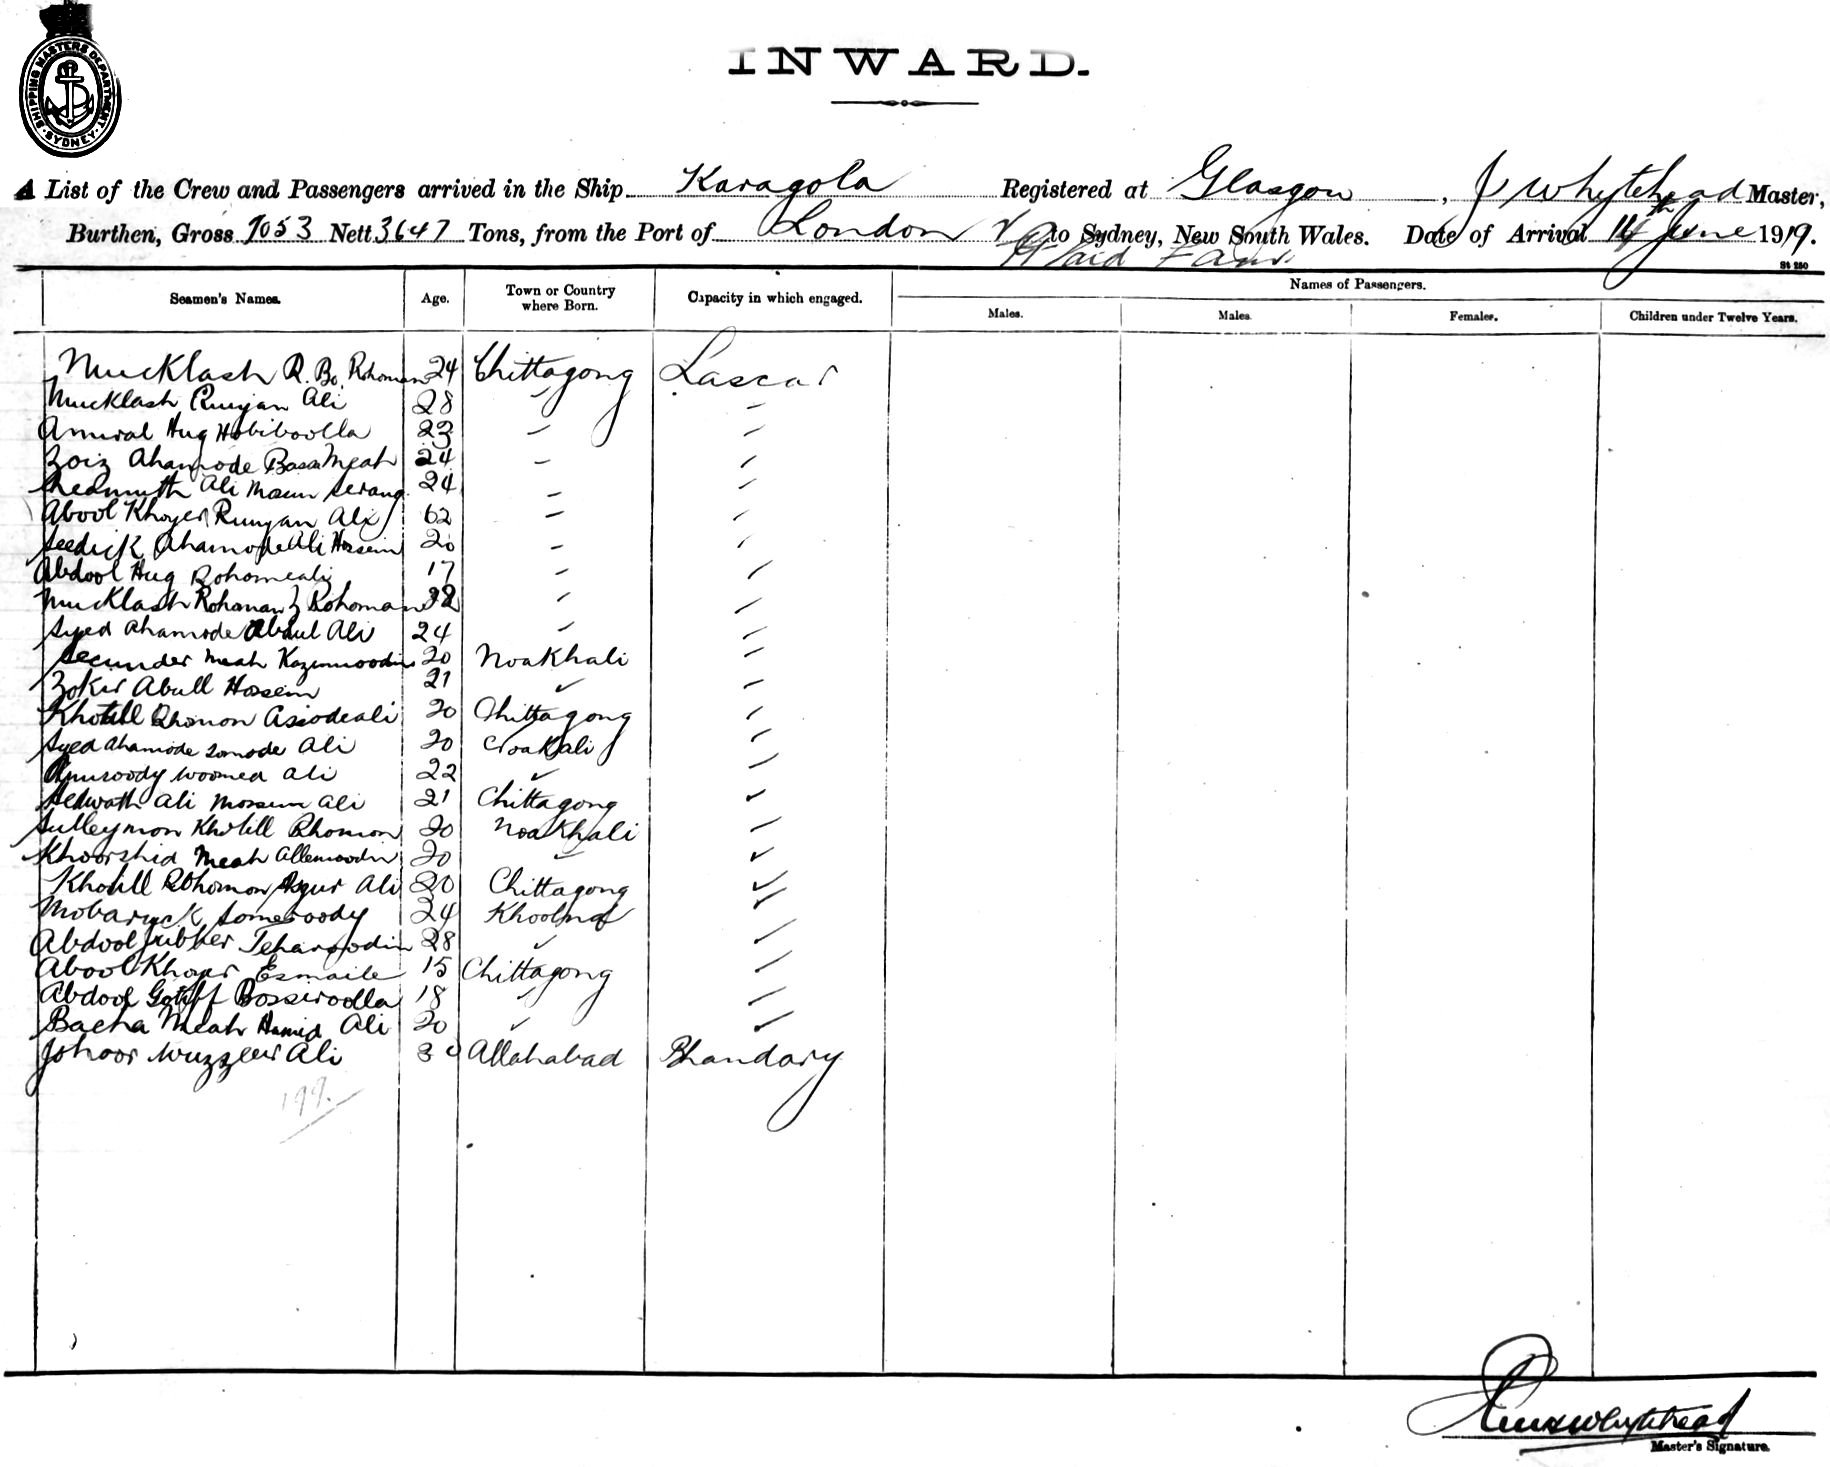 SHIPPING MASTERS DEPARTMENT. SYDNEY
INWARD.
A List of the Crew and Passengers arrived in the Ship Karagola Registered at Glasgow, J Whytehead Master,
Burthen, Gross 7053 Nett 3647 Tons, from the Port of London to Sydney, New South Wales. Date of Arrival 14th June 1919.
St 280
Seamen's Names. Age. Town or Country where Born. Capacity in which engaged. Names of Passengers.
Males. Males. Females. Children under Twelve Years.
Mucklash R. Bo. Rohoman 24 Chittagong Lascar
Mucklash Ali 28 " "
Hug Hobiboolla 23 " "
Zoiz Ahamode Meah 24 " "
Ali Serang 24 " "
Abool Khoyer Runyan Ali 62 " "
Seedick Ahamode Ali Hossein 20 " "
Abdool Hug Rohomeali 17 " "
Mucklash Rohoman Rohoman " "
Syed Ahamode Abdul Ali 24 " "
Secunder Meah Kazimoodin 20 Noakhali "
Zokir Abull Hossein 21 " "
Khotill Rhomon Asiodeali 20 Chittagong "
Syed Ahamode Somode Ali 20 "
Woomed Ali 22 " "
Ali Mossum Ali 21 Chittagong "
Sulleymon Khotill Rhomon 20 Noakhali "
Khoorshid Meah Allemoodin 20 " "
Khotill Rhomon Asgur Ali 20 Chittagong "
Mobaruck Someroody 24 Khoolna "
Abdool Jubber 28 " "
Abool Khoyer Esmaile 15 Chittagong "
Abdool Bossiroolla 18 " "
Bacha Meah Hamid Ali 20 " "
Johoor Wuzzeer Ali 30 Allahabad Bhandary
199.
Whytehead
Master's Signature.